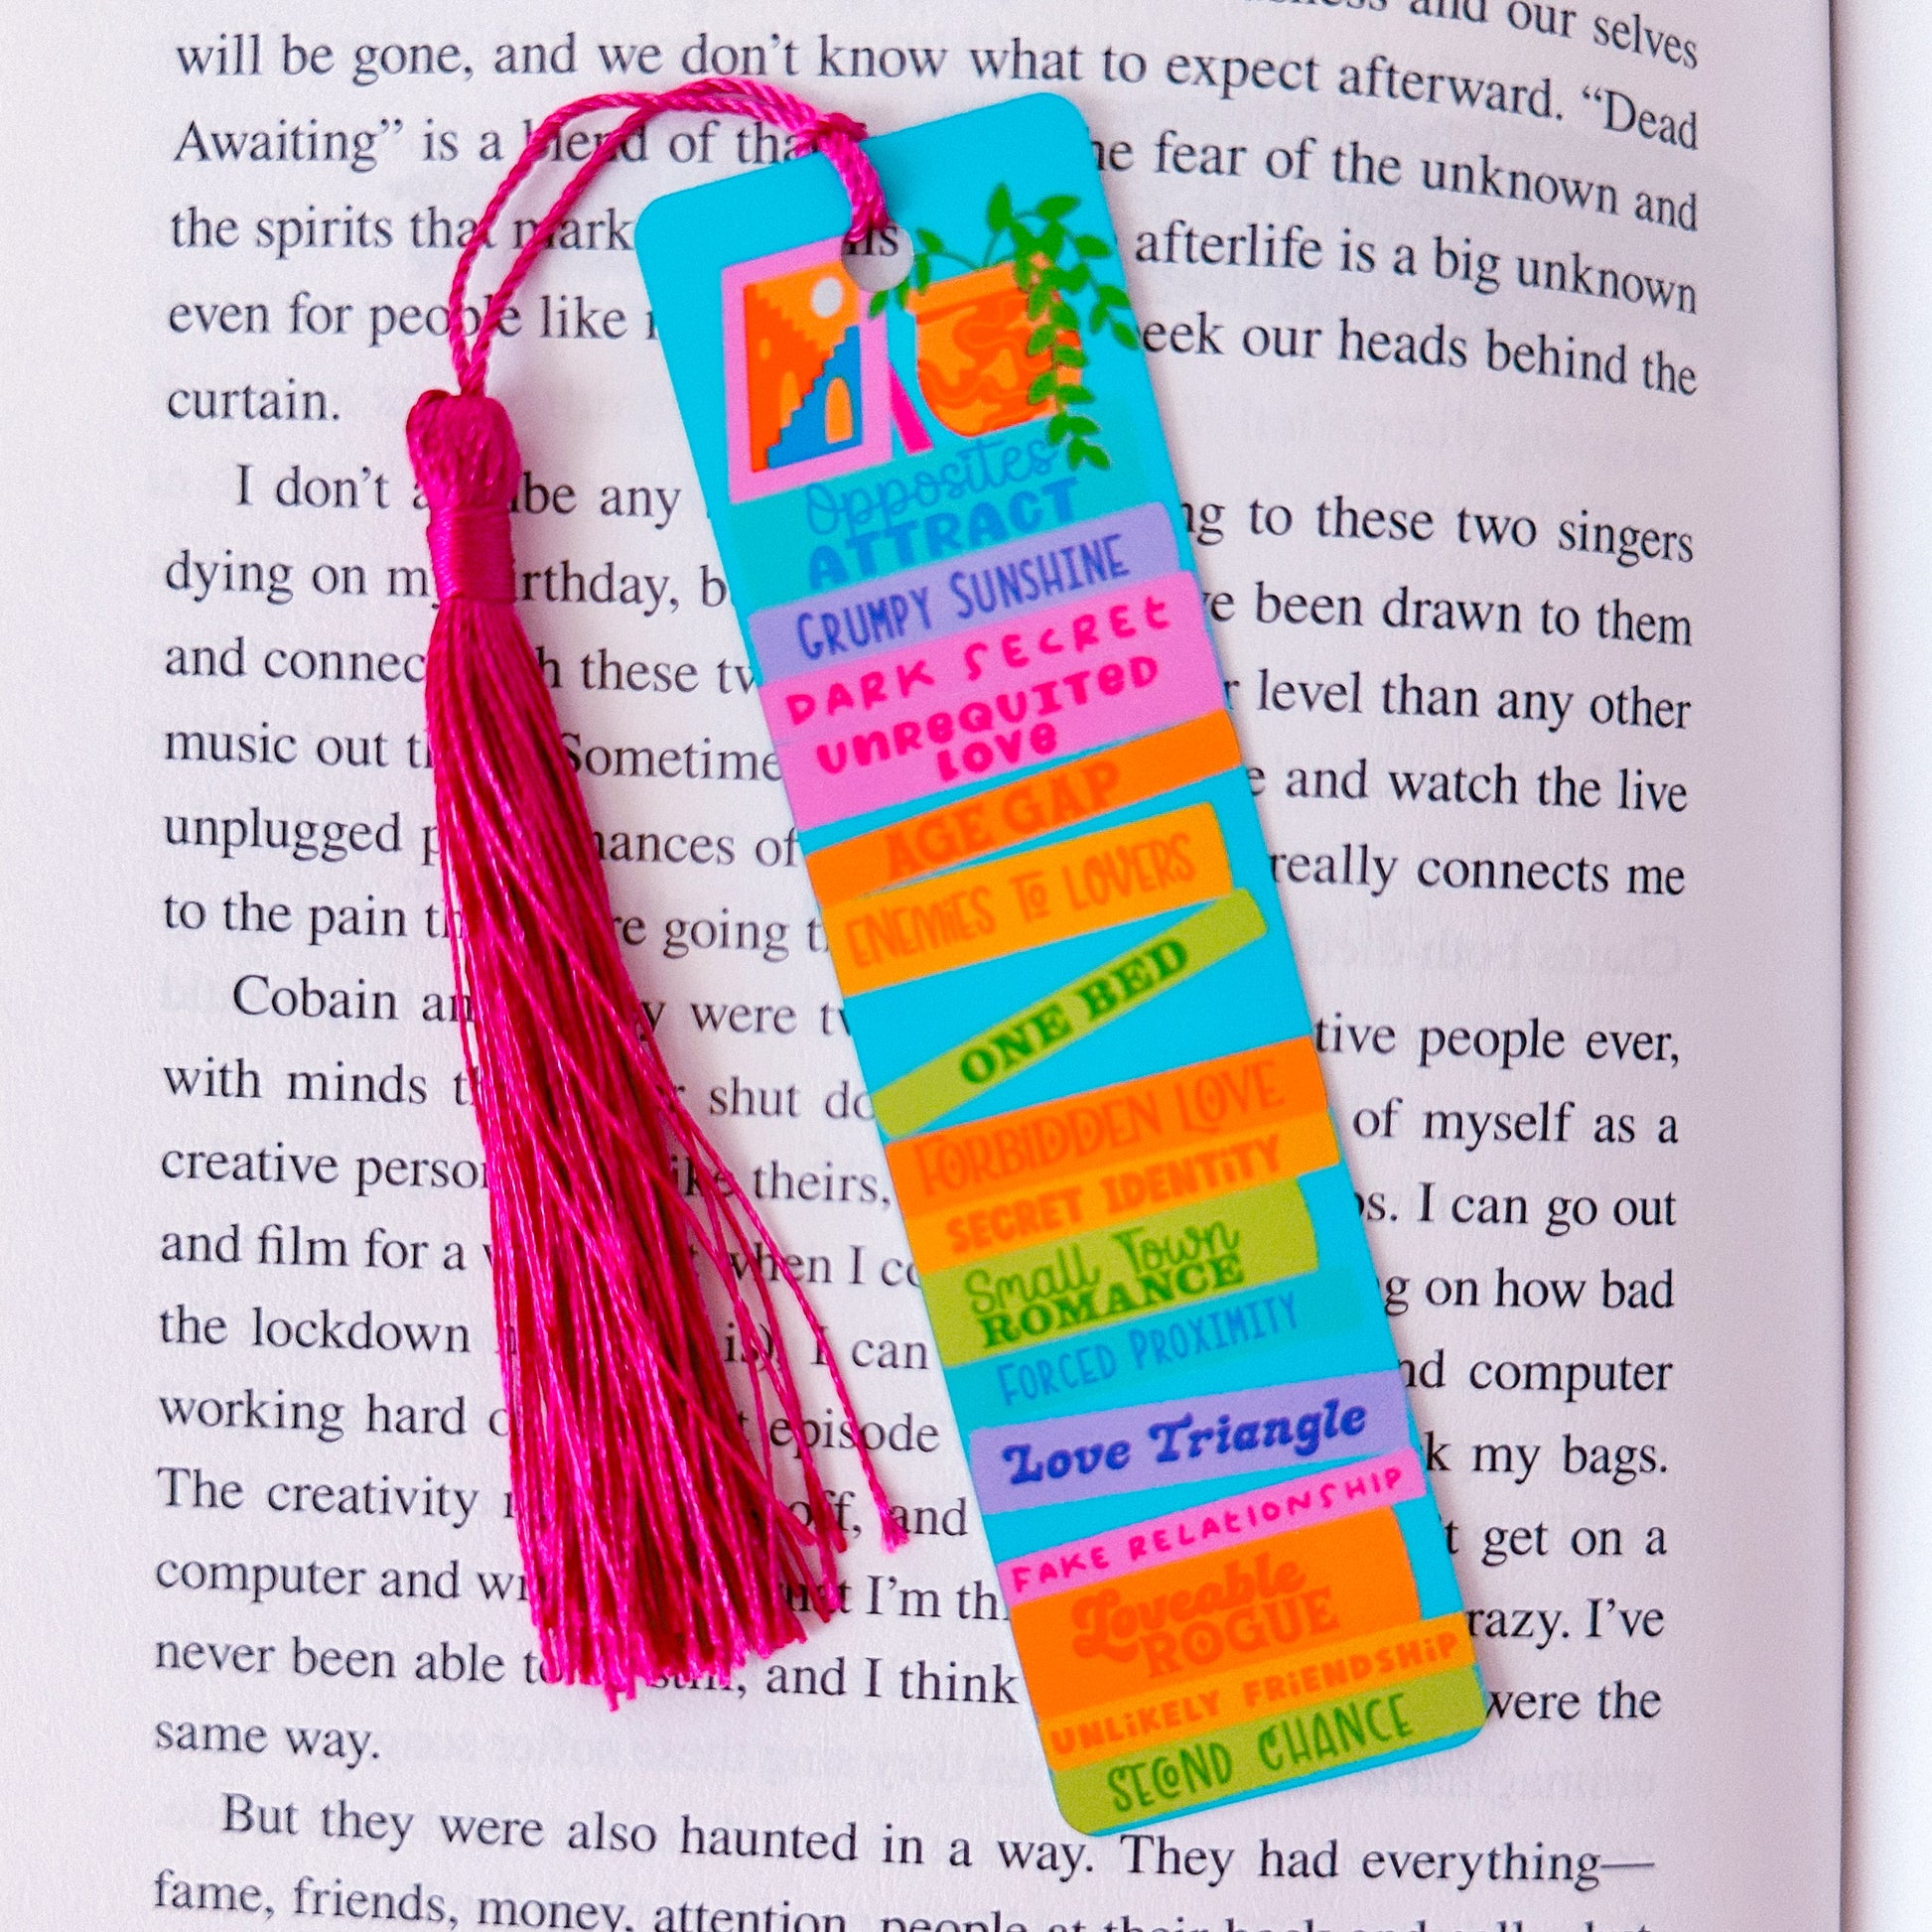 and our selves
will be gone, and we don't know what to expect afterward. “Dead
Awaiting” is a blend of the fear of the unknown and
the spirits that mark afterlife is a big unknown
even for people like our heads behind the
curtain.
I don't any to these two singers
dying on my birthday, been drawn to them
and these level than any other
music out Sometimes and watch the live
unplugged of really connects me
to the pain going
Cobain were people ever,
with minds shut of myself as a
creative like theirs, I can go out
and film for a when I on how bad
the lockdown I can computer
working hard episode my bags.
The creativity off, and get on a
computer and I'm I've
never been able and I think were the
same way.
But they were also haunted in a way. They had everything—
fame, friends, money, attention, people at their
Opposites
ATTRACT
GRUMPY SUNSHINE
DARK SECRET
UNREQUITED
LOVE
AGE GAP
ENEMIES TO LOVERS
ONE BED
FORBIDDEN LOVE
SECRET IDENTITY
Small Town
ROMANCE
FORCED PROXIMITY
Love Triangle
FAKE RELATIONSHIP
Loveable
ROGUE
UNLIKELY FRIENDSHIP
SECOND CHANCE